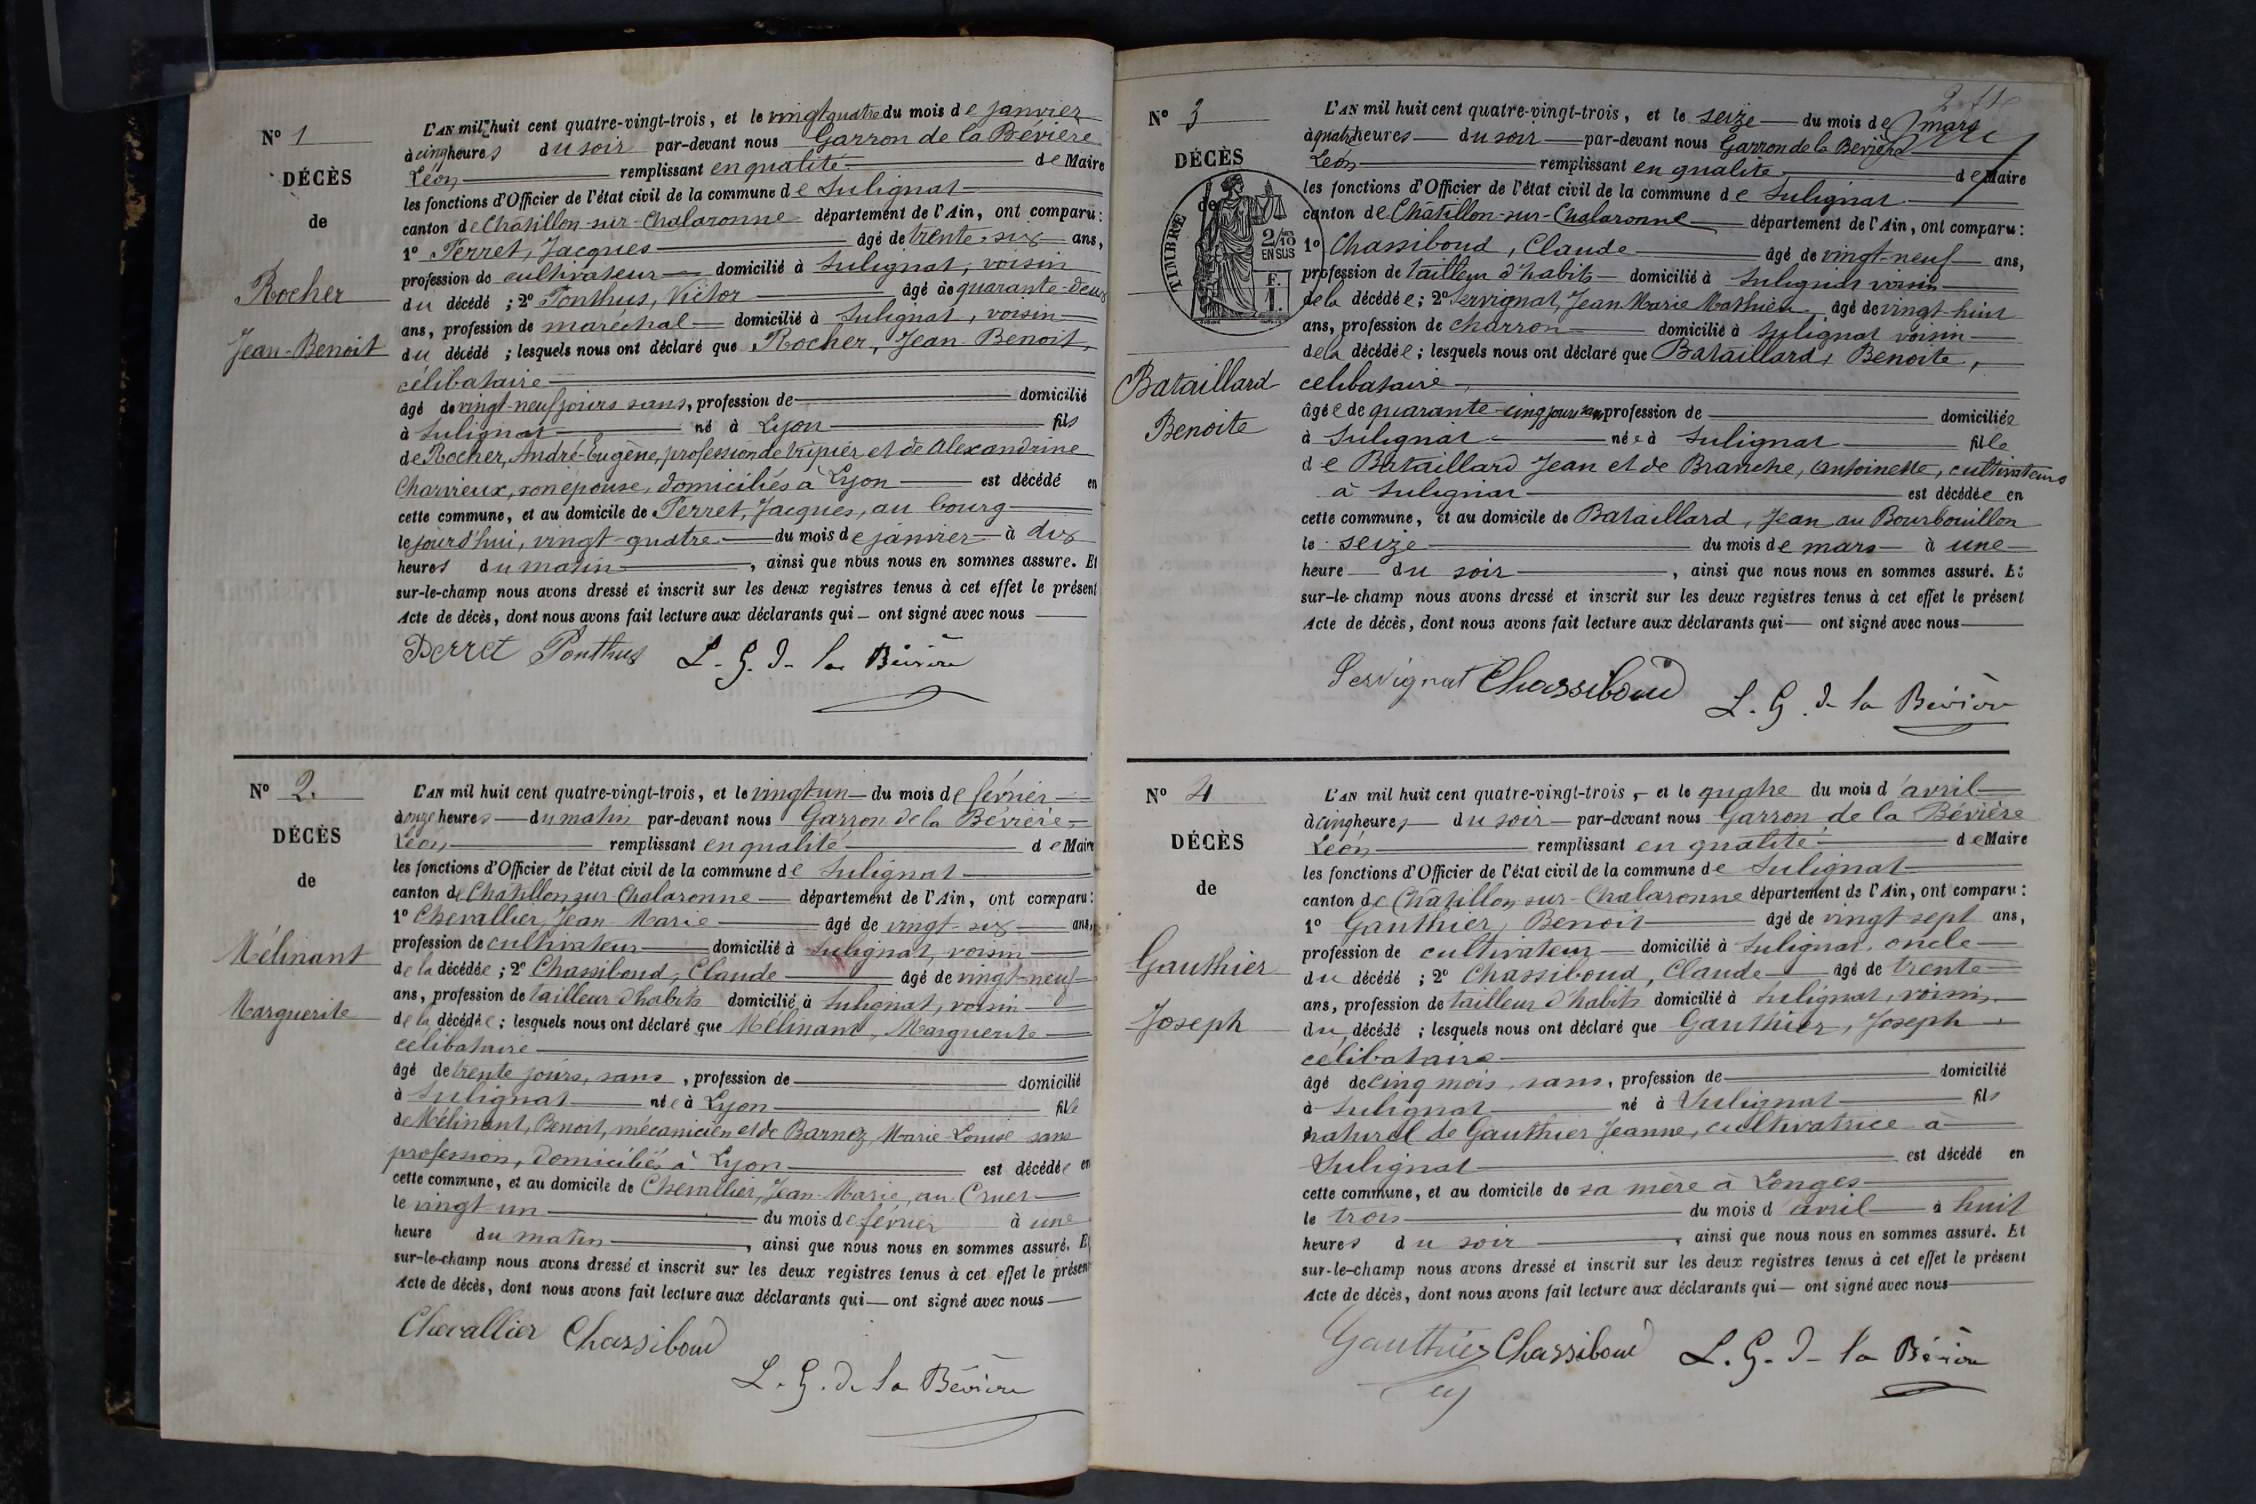 N° 1
DÉCÈS
de
Rocher
Jean-Benoit
L'AN mil huit cent quatre-vingt-trois, et le vingt quatre du mois de janvier
à cinq heures du soir par-devant nous Garron de la Bévière
Léon remplissant en qualité de Maire
les fonctions d'Officier de l'état civil de la commune de Sulignat
canton de Châtillon-sur-Chalaronne département de l'Ain, ont comparu :
1° Perret, Jacques âgé de trente-six ans,
profession de cultivateur domicilié à Sulignat, voisin
du décédé ; 2° Ponthus, Victor âgé de quarante-deux
ans, profession de maréchal domicilié à Sulignat, voisin
du décédé ; lesquels nous ont déclaré que Rocher, Jean-Benoit,
célibataire
âgé de vingt-neuf jours sans, profession de domicilié
à Sulignat né à Lyon fils
de Rocher, André-Eugène, profession de tripier et de Alexandrine
Charvieux, son épouse, domiciliés à Lyon est décédé en
cette commune, et au domicile de Perret, Jacques, au bourg
le jourd'hui, vingt-quatre du mois de janvier à dix
heures du matin, ainsi que nous nous en sommes assuré. Et
sur-le-champ nous avons dressé et inscrit sur les deux registres tenus à cet effet le présent
Acte de décès, dont nous avons fait lecture aux déclarants qui ont signé avec nous
Perret Ponthus L. G. de la Bévière
N° 2.
DÉCÈS
de
Mélinant
Marguerite
L'AN mil huit cent quatre-vingt-trois, et le vingt-un du mois de février
à onze heures du matin par-devant nous Garron de la Bévière,
Léon, remplissant en qualité de Maire
les fonctions d'Officier de l'état civil de la commune de Sulignat
canton de Châtillon-sur-Chalaronne département de l'Ain, ont comparu :
1° Chevallier, Jean-Marie âgé de vingt-six ans,
profession de cultivateur domicilié à Sulignat, voisin
de la décédée ; 2° Chassiboud, Claude âgé de vingt-neuf
ans, profession de tailleur d'habits domicilié à Sulignat, voisin
de la décédée ; lesquels nous ont déclaré que Mélinant, Marguerite
célibataire
âgé de trente jours, sans, profession de domicilié
à Sulignat née à Lyon fille
de Mélinant, Benoit, mécanicien et de Barnez, Marie-Louise sans
profession, domiciliés à Lyon est décédée en
cette commune, et au domicile de Chevallier, Jean-Marie, au Cruer
le vingt-un du mois de février à une
heure du matin, ainsi que nous nous en sommes assuré. Et
sur-le-champ nous avons dressé et inscrit sur les deux registres tenus à cet effet le présent
Acte de décès, dont nous avons fait lecture aux déclarants qui ont signé avec nous
Chevallier Chassiboud
L. G. de la Bévière
N° 3
DÉCÈS
de
TIMBRE
2/10 EN SUS
F. 1.
Bataillard
Benoite
L'AN mil huit cent quatre-vingt-trois, et le seize du mois de mars
à quatre heures du soir par-devant nous Garron de la Bévière
Léon remplissant en qualité de Maire
les fonctions d'Officier de l'état civil de la commune de Sulignat
canton de Châtillon-sur-Chalaronne département de l'Ain, ont comparu :
1° Chassiboud, Claude âgé de vingt-neuf ans,
profession de tailleur d'habits domicilié à Sulignat voisin
de la décédée ; 2° Servignat, Jean-Marie Mathieu âgé de vingt-huit
ans, profession de charron domicilié à Sulignat voisin
de la décédée ; lesquels nous ont déclaré que Bataillard, Benoite,
célibataire,
âgée de quarante-cinq jours sans profession de domiciliée
à Sulignat née à Sulignat fille
de Bataillard Jean et de Branche, Antoinette, cultivateurs
à Sulignat est décédée en
cette commune, et au domicile de Bataillard, Jean au Bourbouillon
le seize du mois de mars à une
heure du soir, ainsi que nous nous en sommes assuré. Et
sur-le-champ nous avons dressé et inscrit sur les deux registres tenus à cet effet le présent
Acte de décès, dont nous avons fait lecture aux déclarants qui ont signé avec nous
Servignat Chassiboud L. G. de la Bévière
N° 4
DÉCÈS
de
Gauthier
Joseph
L'AN mil huit cent quatre-vingt-trois, et le quatre du mois d'avril
à cinq heures du soir par-devant nous Garron de la Bévière
Léon remplissant en qualité de Maire
les fonctions d'Officier de l'état civil de la commune de Sulignat
canton de Châtillon-sur-Chalaronne département de l'Ain, ont comparu :
1° Gauthier, Benoit âgé de vingt-sept ans,
profession de cultivateur domicilié à Sulignat, oncle
du décédé ; 2° Chassiboud, Claude âgé de trente
ans, profession de tailleur d'habits domicilié à Sulignat, voisin
du décédé ; lesquels nous ont déclaré que Gauthier, Joseph
célibataire
âgé de cinq mois, sans, profession de domicilié
à Sulignat né à Sulignat fils
naturel de Gauthier Jeanne, cultivatrice à
Sulignat est décédé en
cette commune, et au domicile de sa mère à Longes
le trois du mois d'avril à huit
heures du soir, ainsi que nous nous en sommes assuré. Et
sur-le-champ nous avons dressé et inscrit sur les deux registres tenus à cet effet le présent
Acte de décès, dont nous avons fait lecture aux déclarants qui ont signé avec nous
Gauthier Chassiboud L. G. de la Bévière